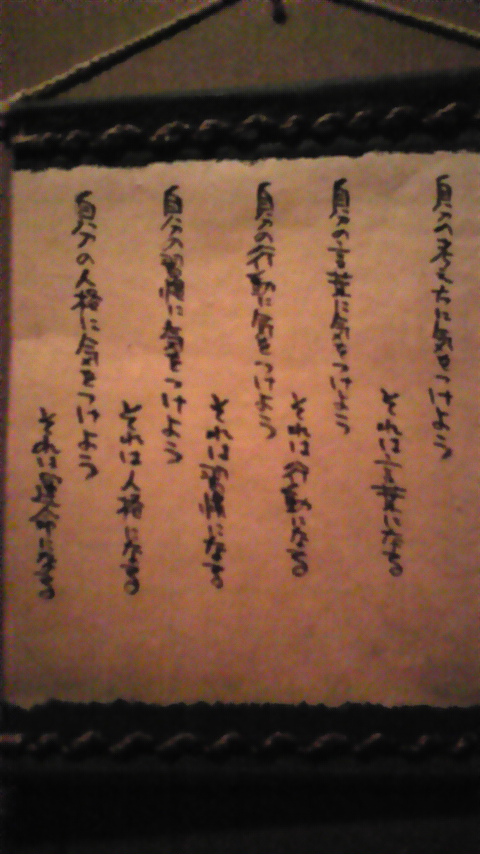 自分の考え方に気をつけよう
それは言葉になる
自分の言葉に気をつけよう
それは行動になる
自分の行動に気をつけよう
それは習慣になる
自分の習慣に気をつけよう
それは人格になる
自分の人格に気をつけよう
それは運命になる